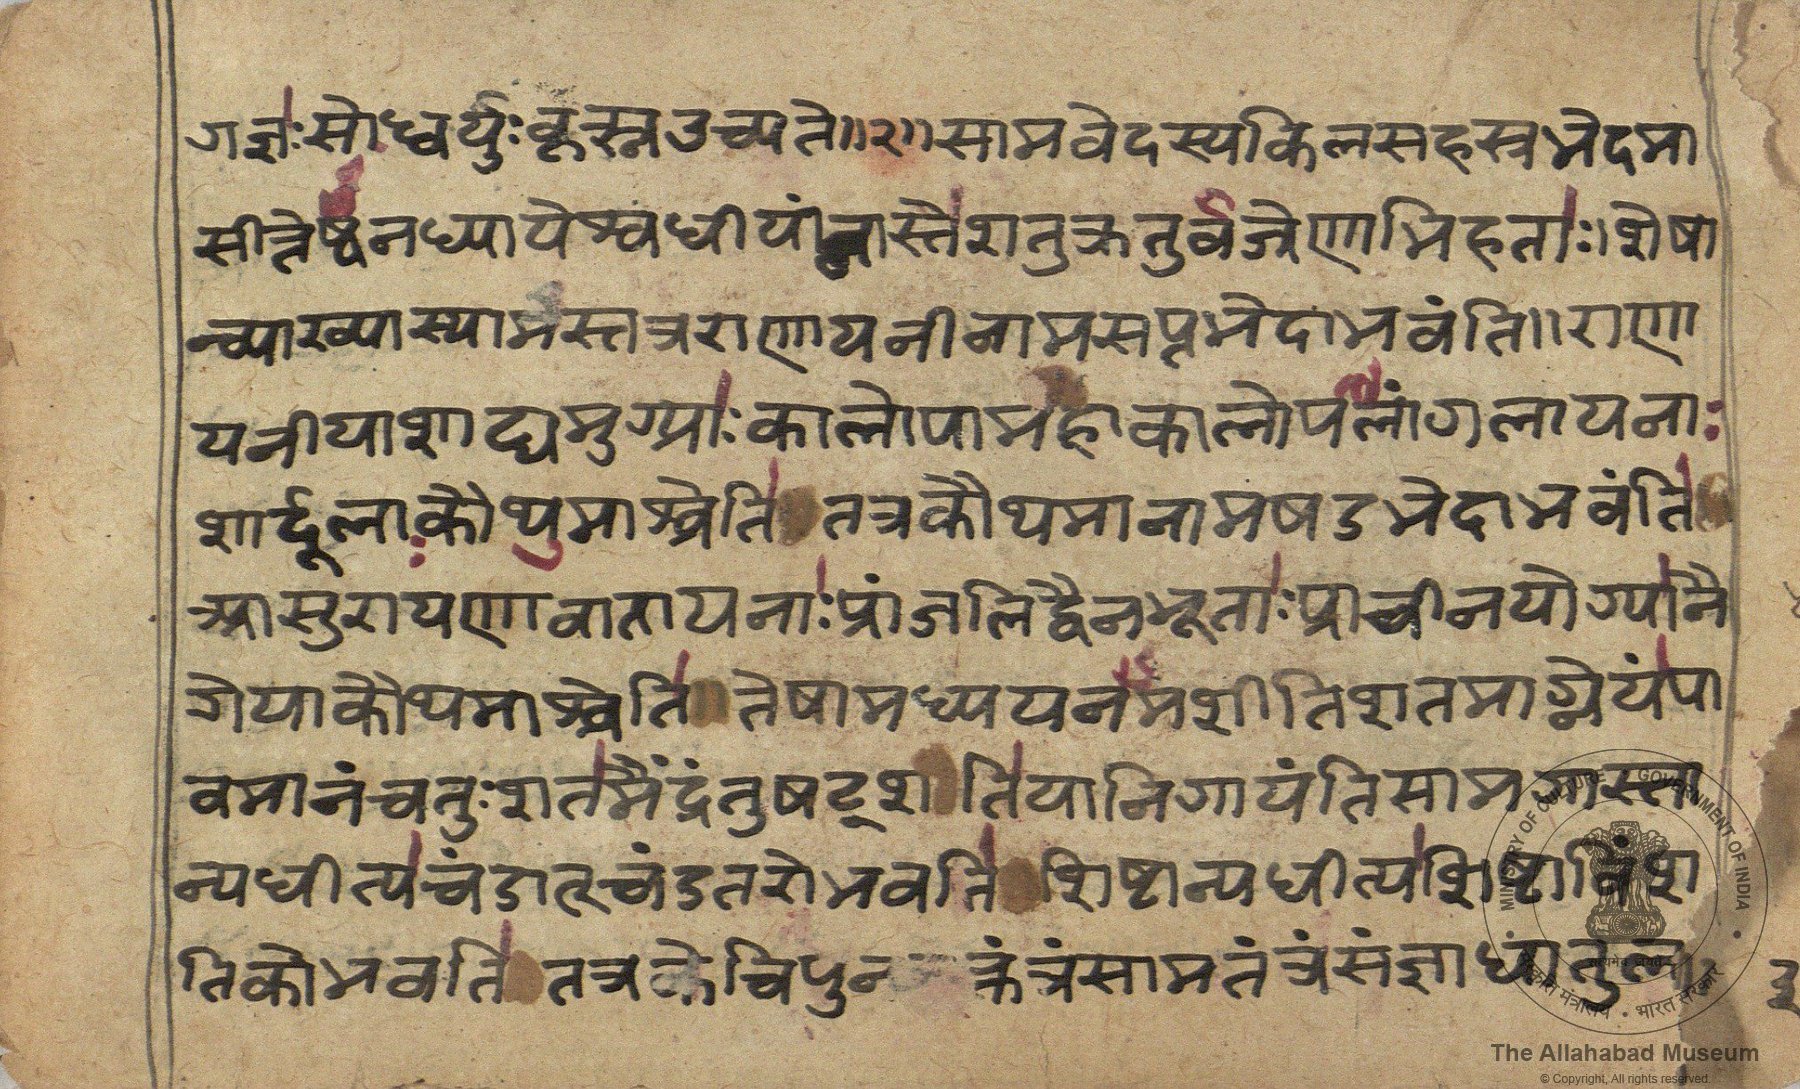 गज्ञः सोध्वर्युः कृत्स्न उच्यते ॥२॥ सामवेदस्य किल सहस्रभेदमा
सीत्तेष्वनध्यायेश्वधीयांनास्ते शतुक्रतुर्वज्रेणाभिहताः । शेषा
न्व्याख्यास्यामस्तत्र राणायनीनामसप्तभेदा भवंति ॥ राणा
यनीयाशाद्यमुग्प्राः कालोपामहाकालोप लांगलायनाः
शार्दूलाः कौथुमाश्चेति तत्र कौथमानामषडभेदा भवंति
आसुरायणावातायनाः प्रांजलिद्वैनभूताः प्राचीनयोग्यानै
गेयाकौथमाश्चेति तेषामध्ययनमशीतिशतमाग्नेयं पा
वमानं चतुःशतमैंद्रंतुषट्श ति यानि गायंति साम
न्यधीत्य चंडात्चंडतरो भवति शिष्टान्यधीत्य शि
तिको भवति तत्र केचिपुन त्रंसामतंत्रंसंज्ञा
The Allahabad Museum
© Copyright, All rights reserved.
MINISTRY OF CULTURE GOVERNMENT OF INDIA
सत्यमेव जयते
मंत्रालय • भारत सरकार